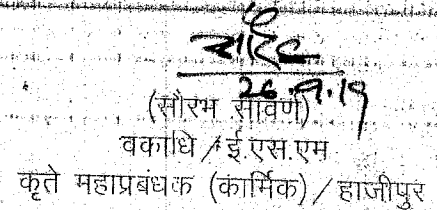 26.9.19
(सौरभ सावर्ण)
वकाधि / ई.एस.एम
कृते महाप्रबंधक (कार्मिक) / हाजीपुर